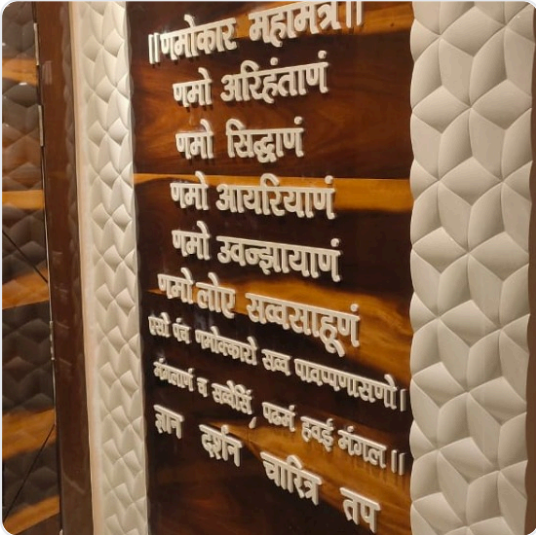 ।।णमोकार महामंत्र।।
णमो अरिहंताणं
णमो सिद्धाणं
णमो आयरियाणं
णमो उवन्झायाणं
णमो लोए सव्वसाहूणं
एसो पंच णमोक्कारो सव्व पावप्पणासणो।
मंगलाणं च सव्वेसिं, पढमं हवई मंगल।।
ज्ञान दर्शन चारित्र तप